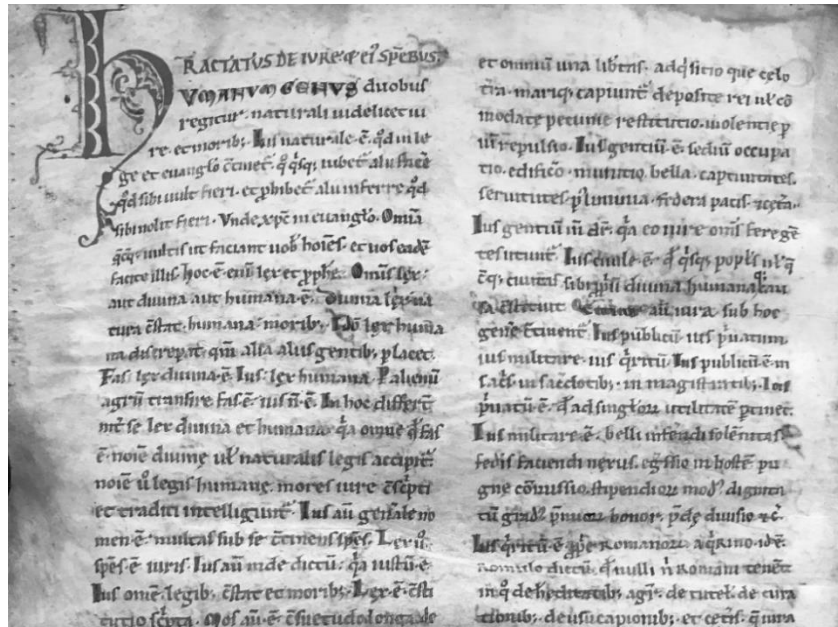 RACTATVS DE IVRE
HVMANVM GENVS duobus
regitur. naturali uidelicet iu
re. et morib;. Ius naturale ē. qđ in le
ge et euangło 
qđ sibi uult fieri. et phibet alii inferre qđ
sibi nolit fieri. Vnde xp̄c in euangło. Om̄ia
ut faciant uob hoīes. et uos eadē
facite illis. hoc ē enī lex et pphē. Om̄is lex
aut diuina aut humana ē. Diuina lex na
tura c̄stat. humana morib;. Iđo lex huma
na discrepat. qm̄ alia aliis gentib; placet.
Fas lex diuina ē. Ius lex humana. P alienū
agrū transire fas ē. ius ñ ē. In hoc differt
int se lex diuina et humana. qa omne qđ fas
ē. noīe diuinę uł naturalis legis accipit
noīe ů legis humanę. mores iure c̄scpti
et traditi intelligunt. Ius aū genale no
men ē. multas sub se c̄tinens spēs. Lex ů
spēs ē iuris. Ius aū inde dictū. qa iustū ē.
Ius omē legib; c̄stat et morib;. Lex ē c̄sti
tutio scpta. Mos aū ē. c̄suetudo longa de
et omniū una libtas. adqsitio que celo
tra. mariq; capiunt. deposite rei uł cō
modate pecunie restitutio. uiolentie p
uī repulsio. Ius gentiū ē. sediū occupa
tio. edificō. munitio. bella. captiuitates.
seruitutes. federa pacis.
Ius gentiū dr̄. qa eo iure om̄s fere gē
tes Ius ciuile ē. qđ qsq; popłs uł
ciuitas sibi diuina humanaq; cau
sa c̄stituit. aū iura sub hoc
genē c̄tinent. Ius publicū. ius puatum.
ius militare. ius qritū. Ius publicū ē in
sacs. in sacdotib;. in magistratib;. Ius
puatū ē. qđ ad singłoꝝ utilitatē ptinet.
Ius militare ē. belli inferendi solēnitas.
fedis faciendi nexus. egssio in hostē. pu
gne cōmissio. stipendioꝝ modꝰ. dignita
tū gradꝰ. pmioꝝ honor. pdę diuisio
Ius qritū ē. ppe Romanoꝝ. a qrino. id ē.
Romulo dictū. qđ nulli ñ Romani tenent.
in q de hęditatib;. de tutel. de cura
tionib;. de usucapionib;. et cetis. q iura